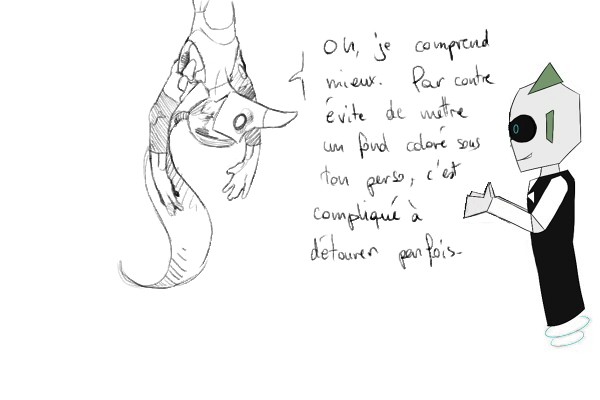 Oh, je comprend
mieux. Par contre
évite de mettre
un fond coloré sous
ton perso, c'est
compliqué à
détourer parfois.